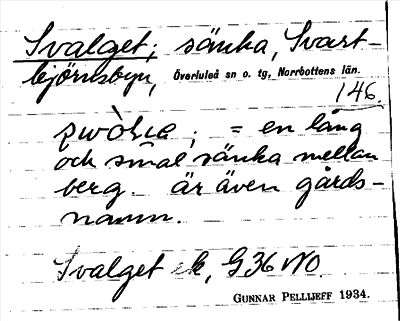 Svalget; sänka, Svart-
björnsbyn, Överluleå sn o. tg, Norrbottens län.
146.
; = en lång
och smal sänka mellan
berg. är även gårds-
namn.
Svalget ek, G36 NO
GUNNAR PELLIJEFF 1934.